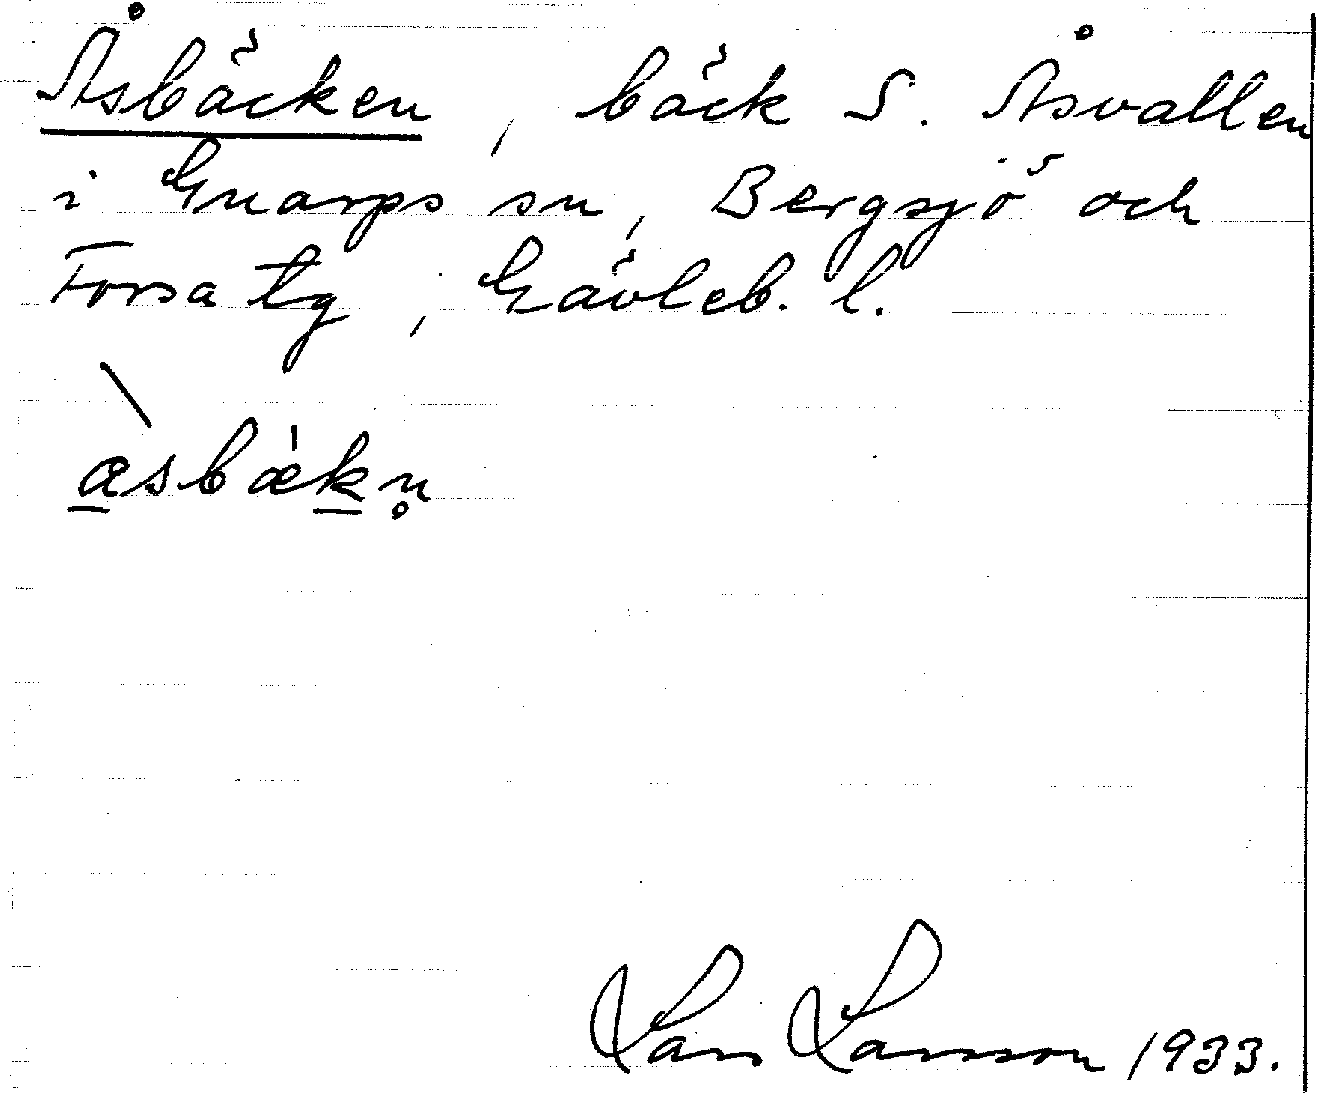 Åsbäcken, bäck S. Åsvallen
i Gnarps sn, Bergsjö och
Forsa tg, Gävleb. l.
åsbækn̥
Lars Larsson 1933.